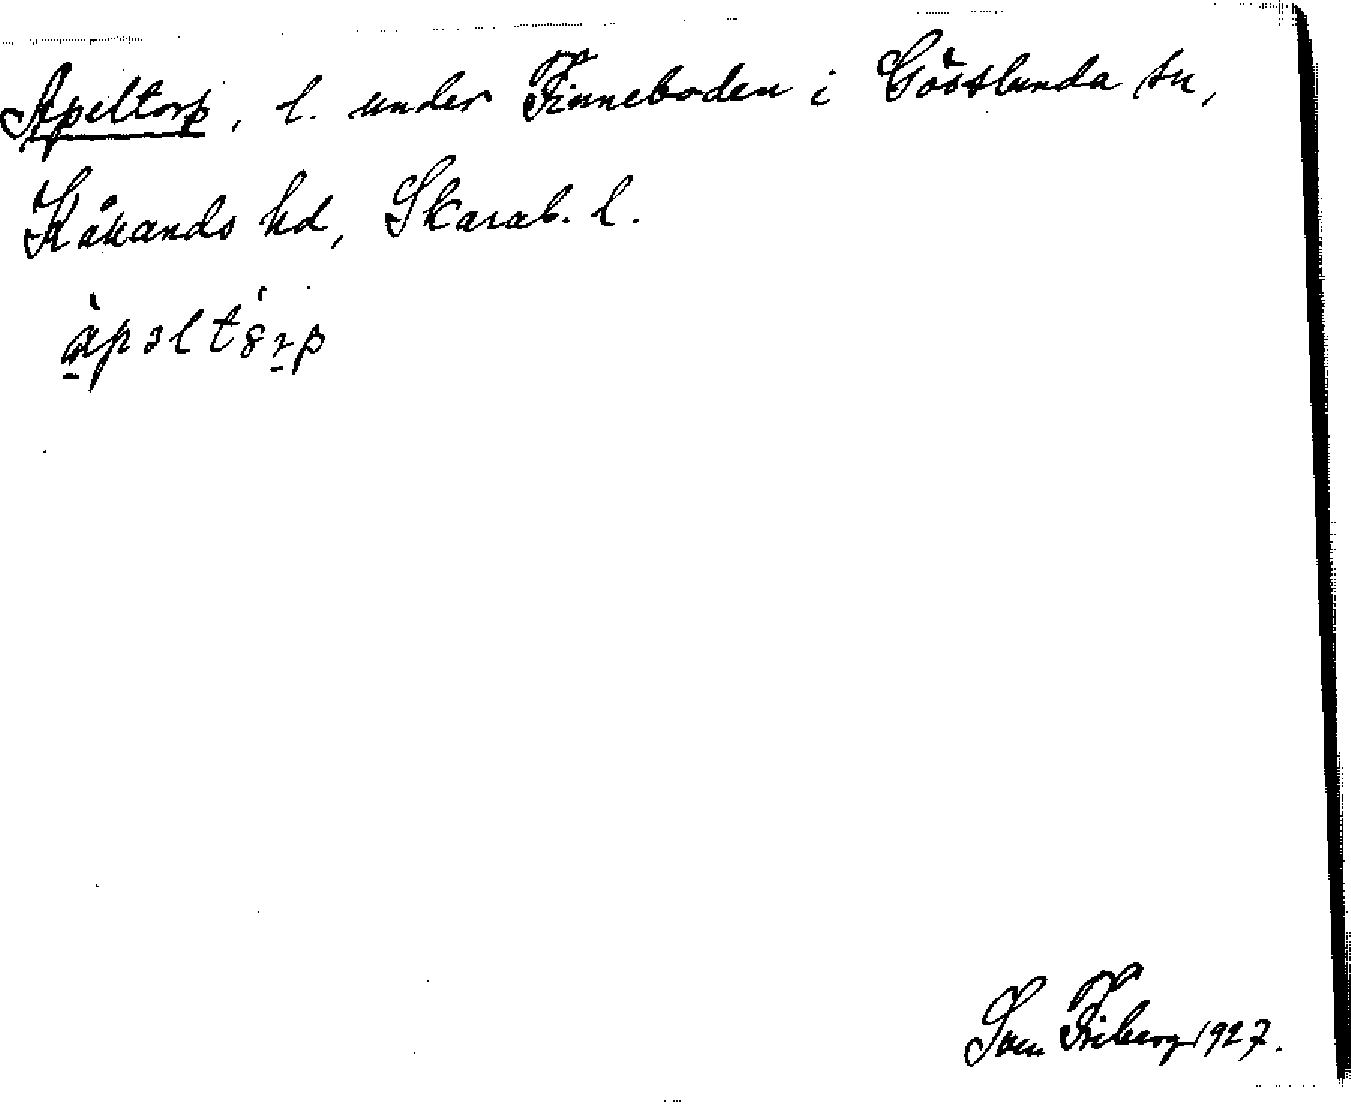 Apeltorp, l. under Finneboden i Gösslunda sn,
Kåkands hd, Skarab. l.
àpəltórp
Sven Friberg 1927.